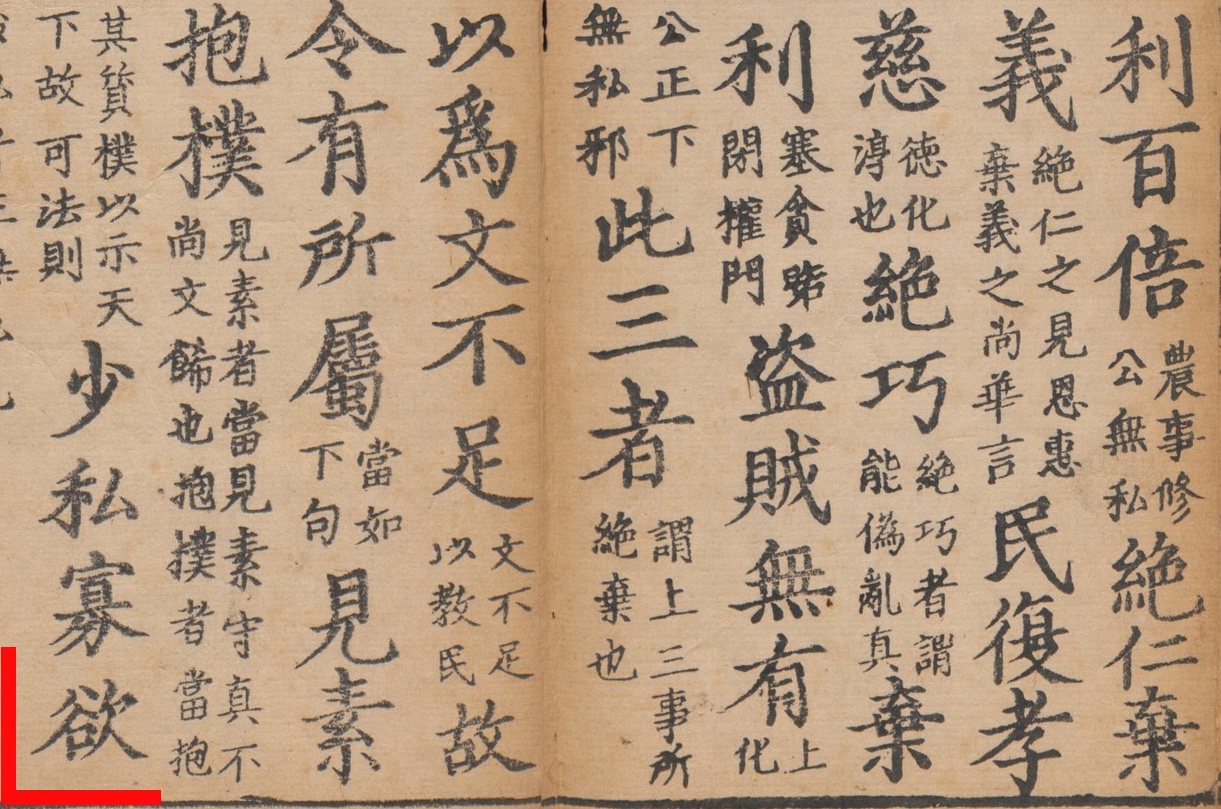 利百倍農事修公無私絶仁棄
義絶仁之見恩惠棄義之尚華言民復孝
慈徳化淳也絶巧絶巧者謂能偽亂真棄
利塞貪路閉權門盜賊無有上化
公正下無私邪此三者謂上三事所絶棄也
以爲文不足文不足以教民故
令有所屬當如下句見素
抱樸見素者當見素守真不尚文餙也抱撲者當抱
其質樸以示天下故可法則少私寡欲